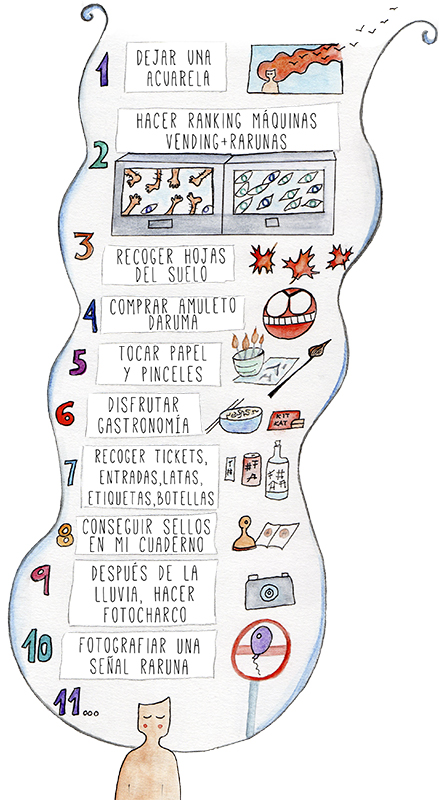 1 DEJAR UNA
ACUARELA
2 HACER RANKING MÁQUINAS
VENDING+RARUNAS
3 RECOGER HOJAS
DEL SUELO
4 COMPRAR AMULETO
DARUMA
5 TOCAR PAPEL
Y PINCELES
6 DISFRUTAR
GASTRONOMÍA
KIT
KAT
7 RECOGER TICKETS,
ENTRADAS,LATAS,
ETIQUETAS,BOTELLAS
8 CONSEGUIR SELLOS
EN MI CUADERNO
9 DESPUÉS DE LA
LLUVIA, HACER
FOTOCHARCO
10 FOTOGRAFIAR UNA
SEÑAL RARUNA
11...